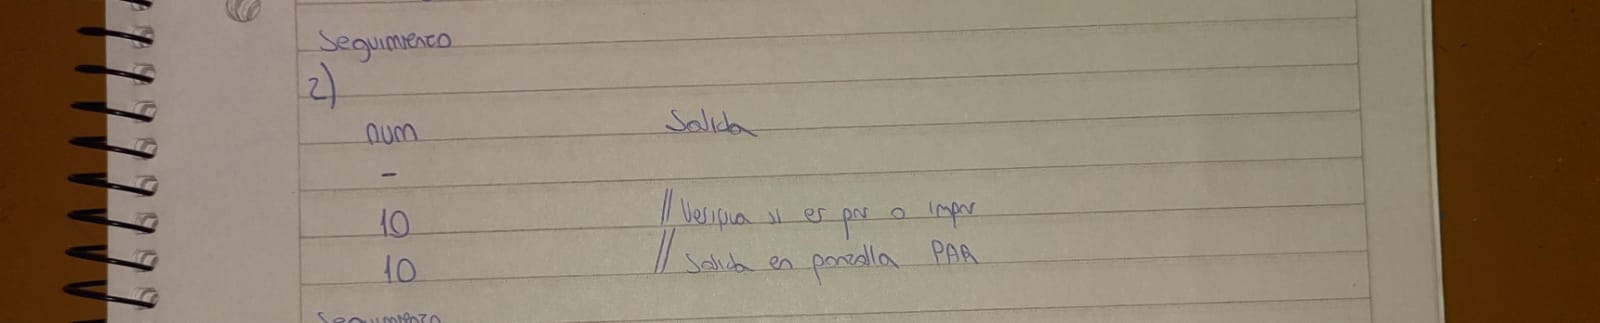 Seguimiento
2)
num Salida
-
10 // Verifica si es par o impar
10 // Salida en pantalla PAR
Seguimiento